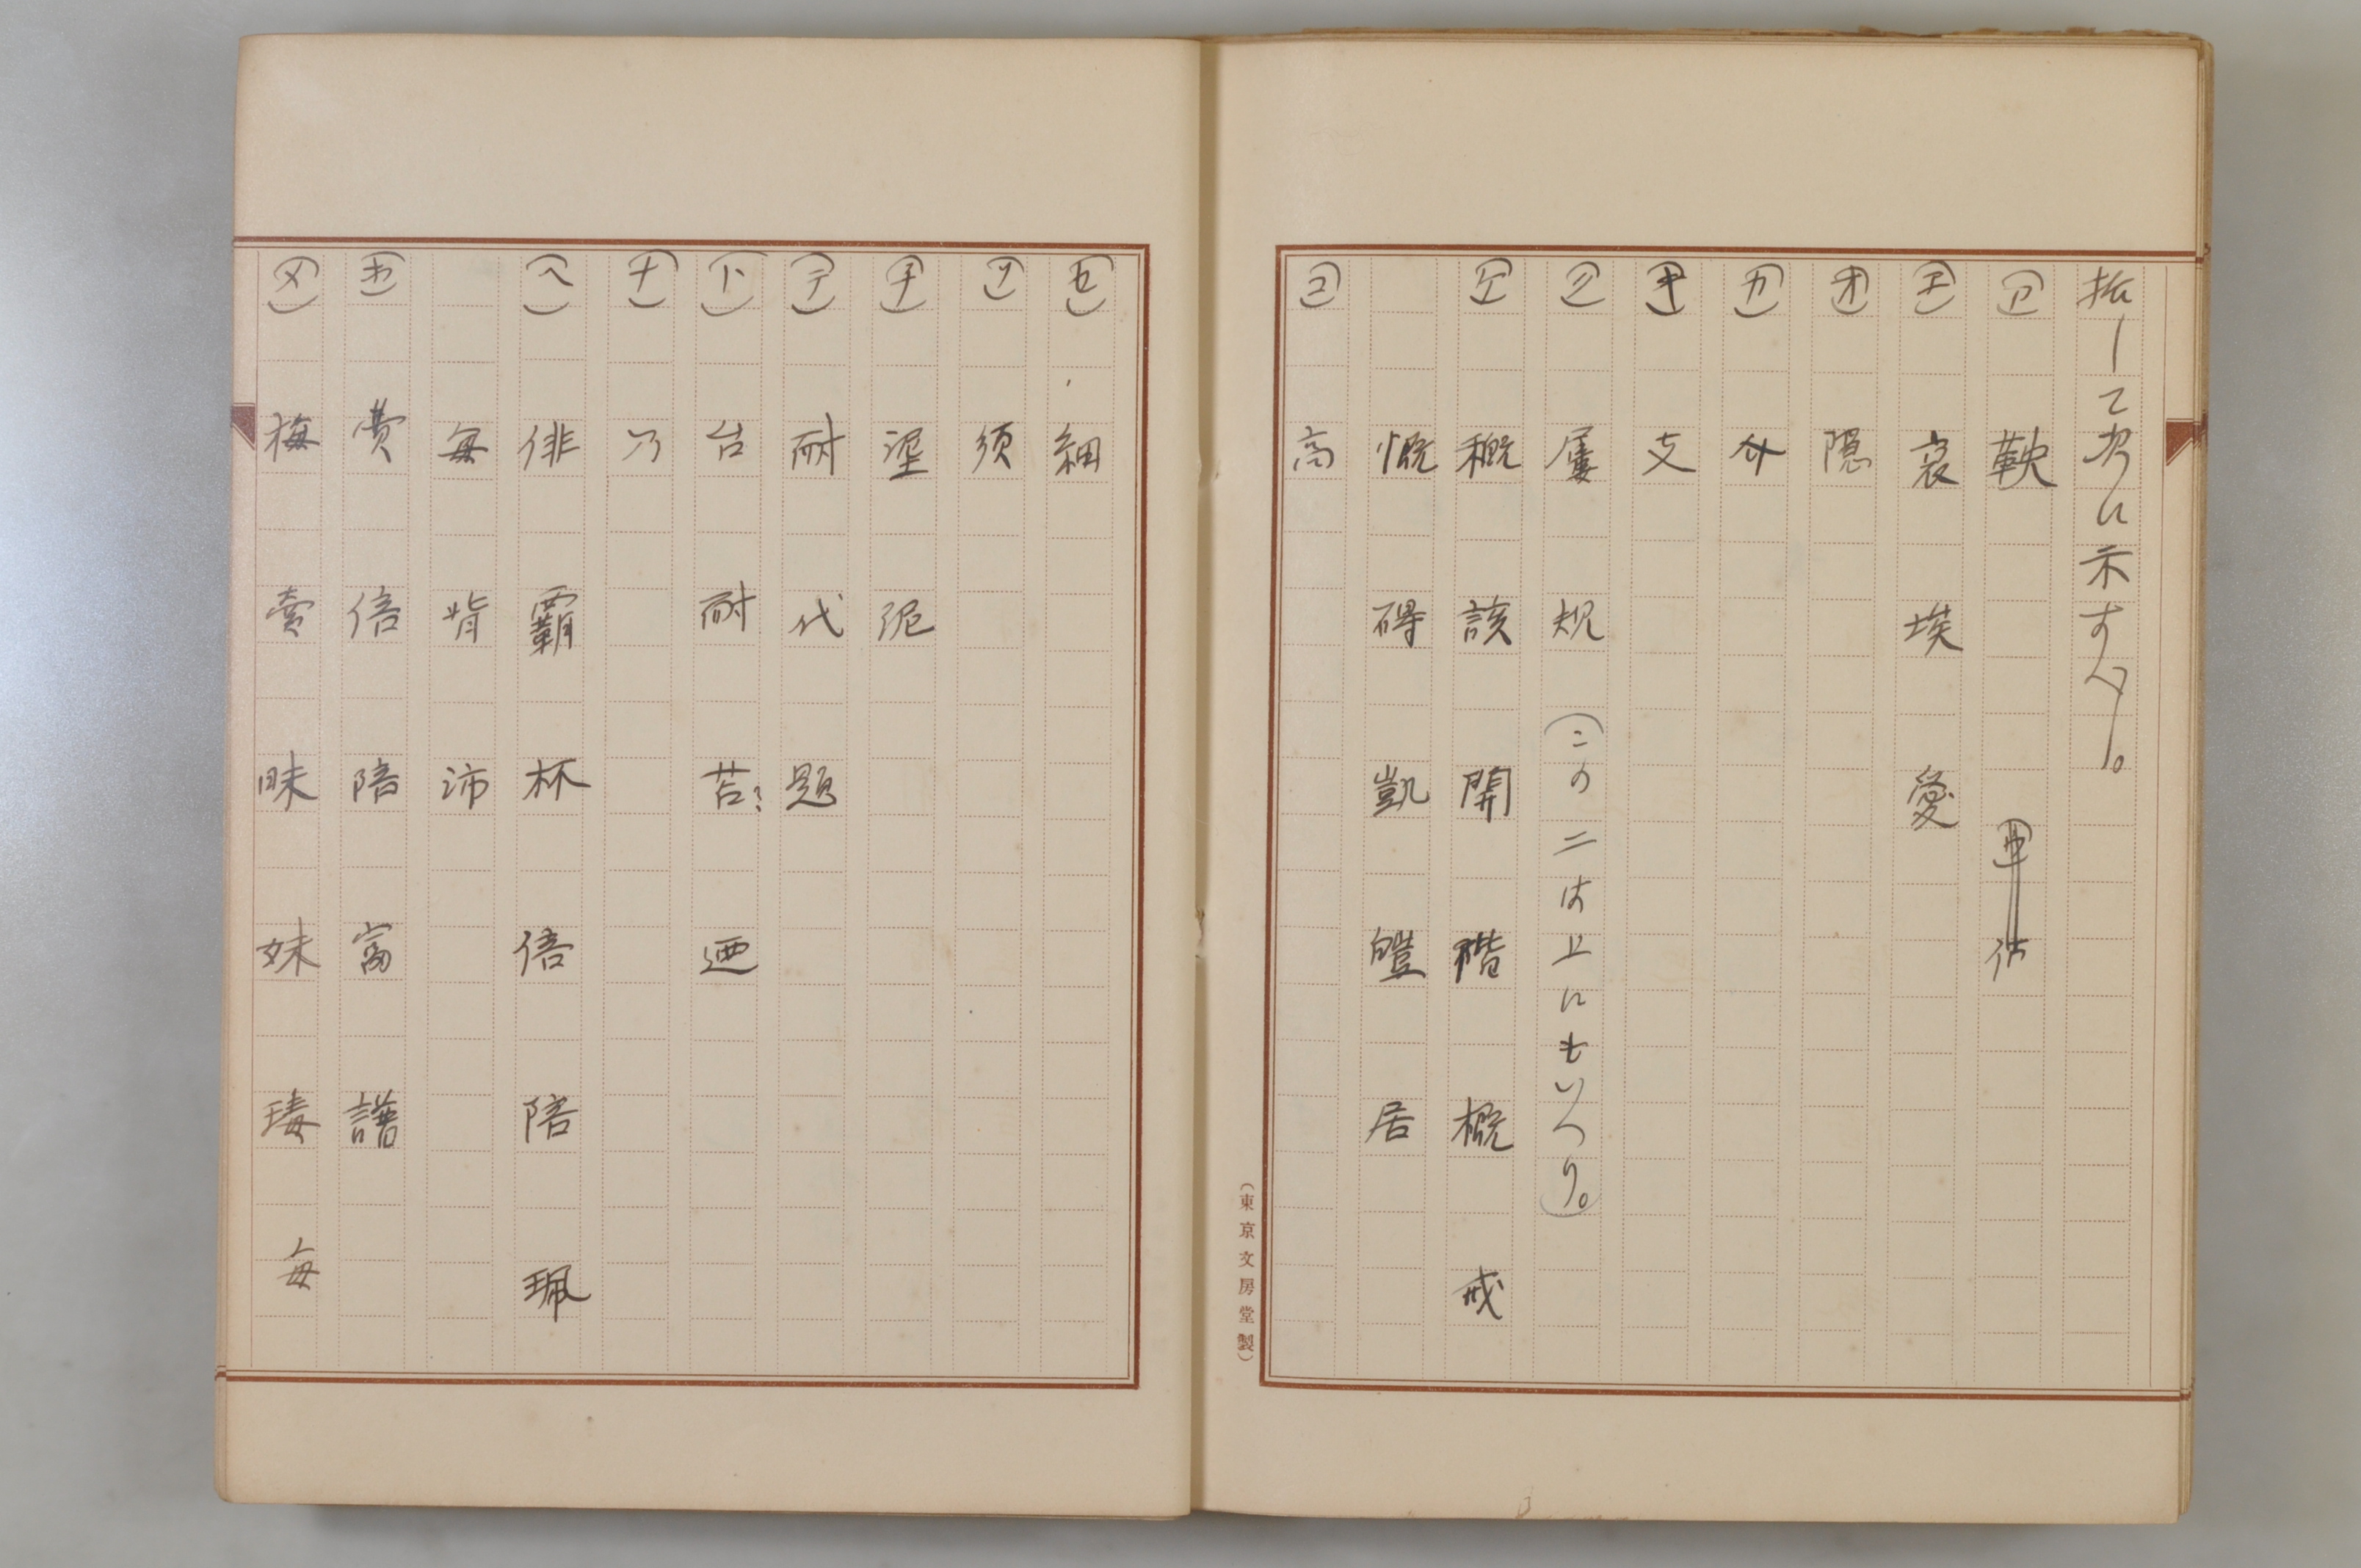 拡して次に示すべし。
(ア) 鞅 佔
(エ) 哀 埃 愛
(オ) 隠
(カ) 介
(キ) 支
(ク) 屢 規 (この二は上にもいへり。)
(ケ) 穊 該 開 階 概 戒
慨 碍 凱 皚 居
(コ) 高
(東京文房堂製)
(セ) 細
(ソ) 須
(チ) 埿 泥
(テ) 耐 代 題
(ト) 台 耐 苔 廼
(ナ) 乃
(ヘ) 俳 覇 杯 倍 陪 珮
毎 背 沛
(ホ) 費 倍 陪 富 譜
(メ) 梅 売 昧 妹 瑇 毎